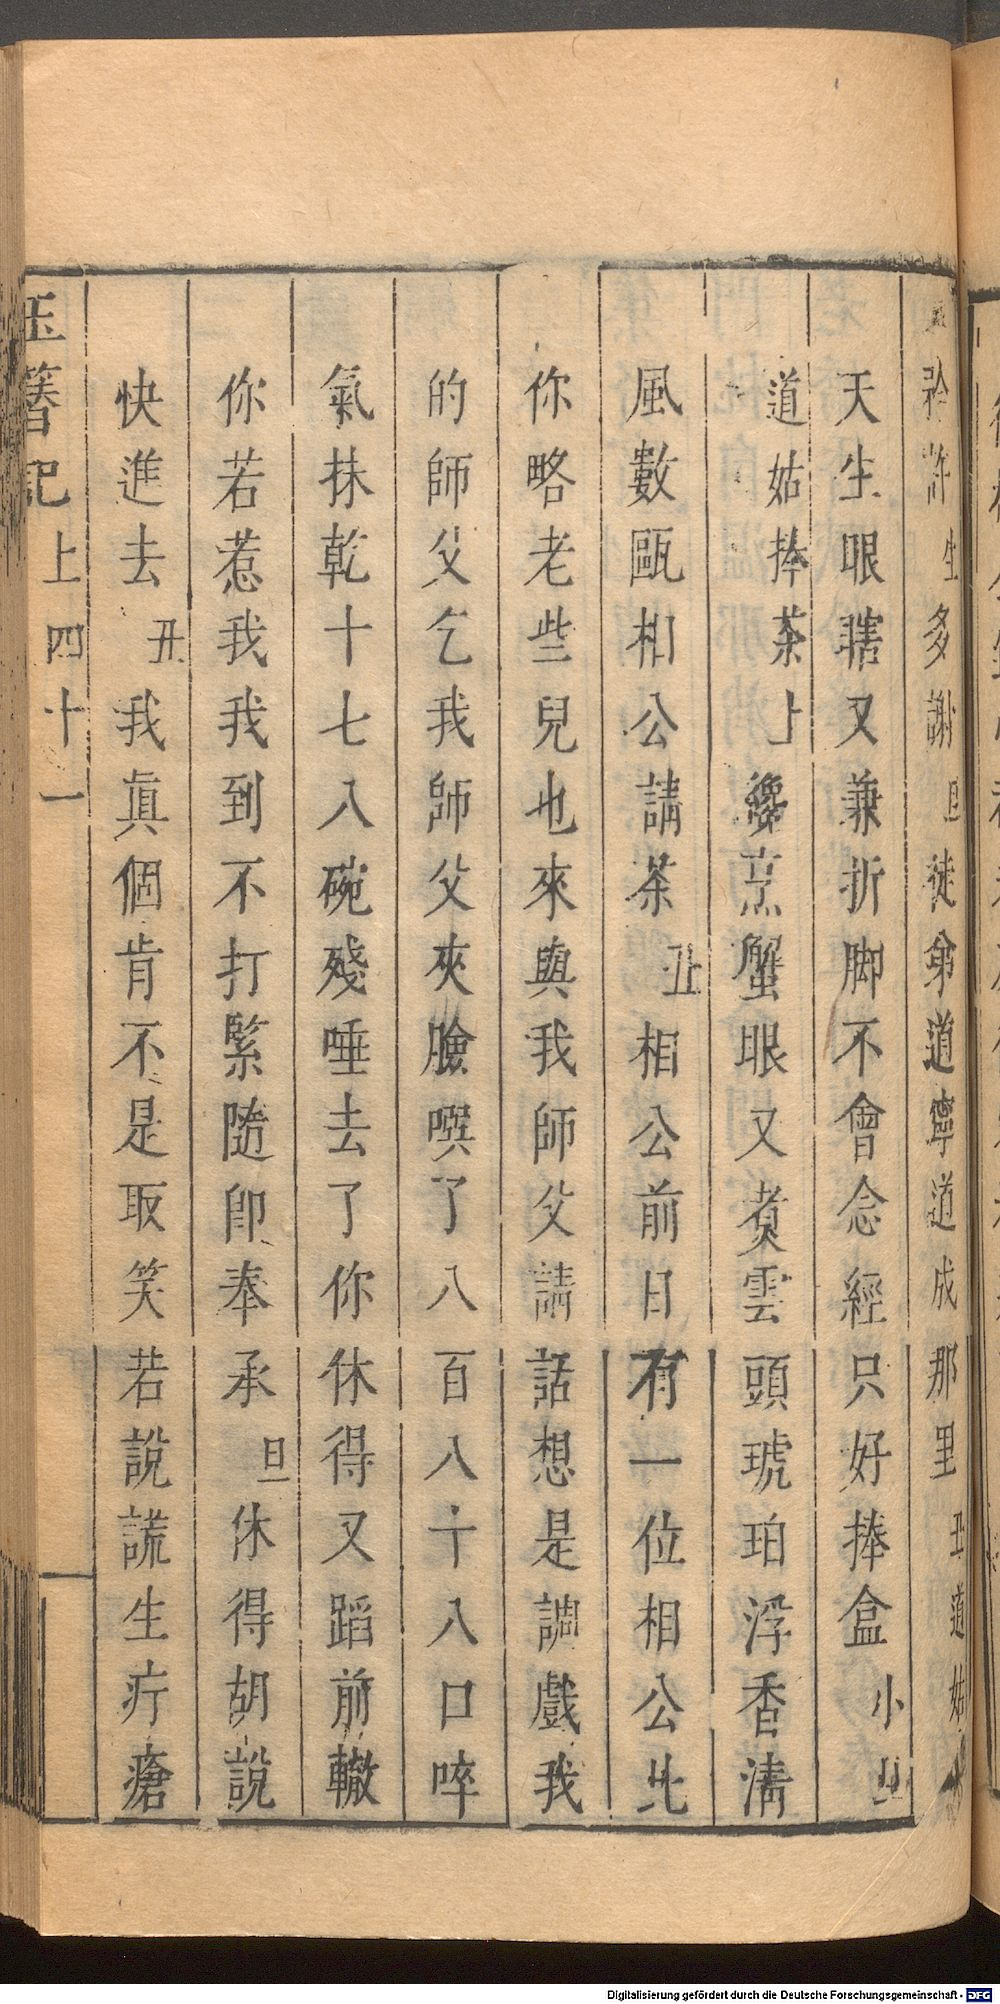 矜許生多謝旦徒弟道寧道成那里丑道姑
天生眼瞎又兼折脚不會念經只好捧盒小丑
道姑捧茶上纔烹蟹眼又煑雲頭琥珀浮香清
風數甌相公請茶丑相公前日有一位相公比
你略老些兒也來與我師父請話想是調戲我
的師父乞我師父夾臉噀了八百八十八口啐
氣抹乾十七八碗殘唾去了你休得又蹈前轍
你若惹我我到不打緊隨卽奉承旦休得胡說
快進去丑我眞個肯不是取笑若說謊生疔瘡
玉簪記上四十一
Digitalisierung gefördert durch die Deutsche Forschungsgemeinschaft - DFG